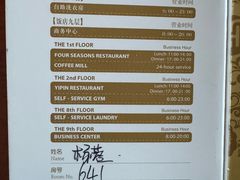 营业时间
自助洗衣房
8:00 ~ 21:00
【饭店九层】
营业时间
商务中心
8:00 ~ 20:00
THE 1st FLOOR Business Hour
FOUR SEASONS RESTAURANT Lunch:11:00-14:00
Dinner: 17:00-21:00
COFFEE MILL 24-hour service
THE 2nd FLOOR Business Hour
YIPIN RESTAURANT Lunch:11:00-14:00
Dinner: 17:00-21:00
SELF - SERVICE GYM 8:00-23:00
THE 8th FLOOR Business Hour
SELF - SERVICE LAUNDRY 8:00-21:00
THE 9th FLOOR Business Hour
BUSINESS CENTER 8:00-20:00
姓名
Name
房号 641
Room No.